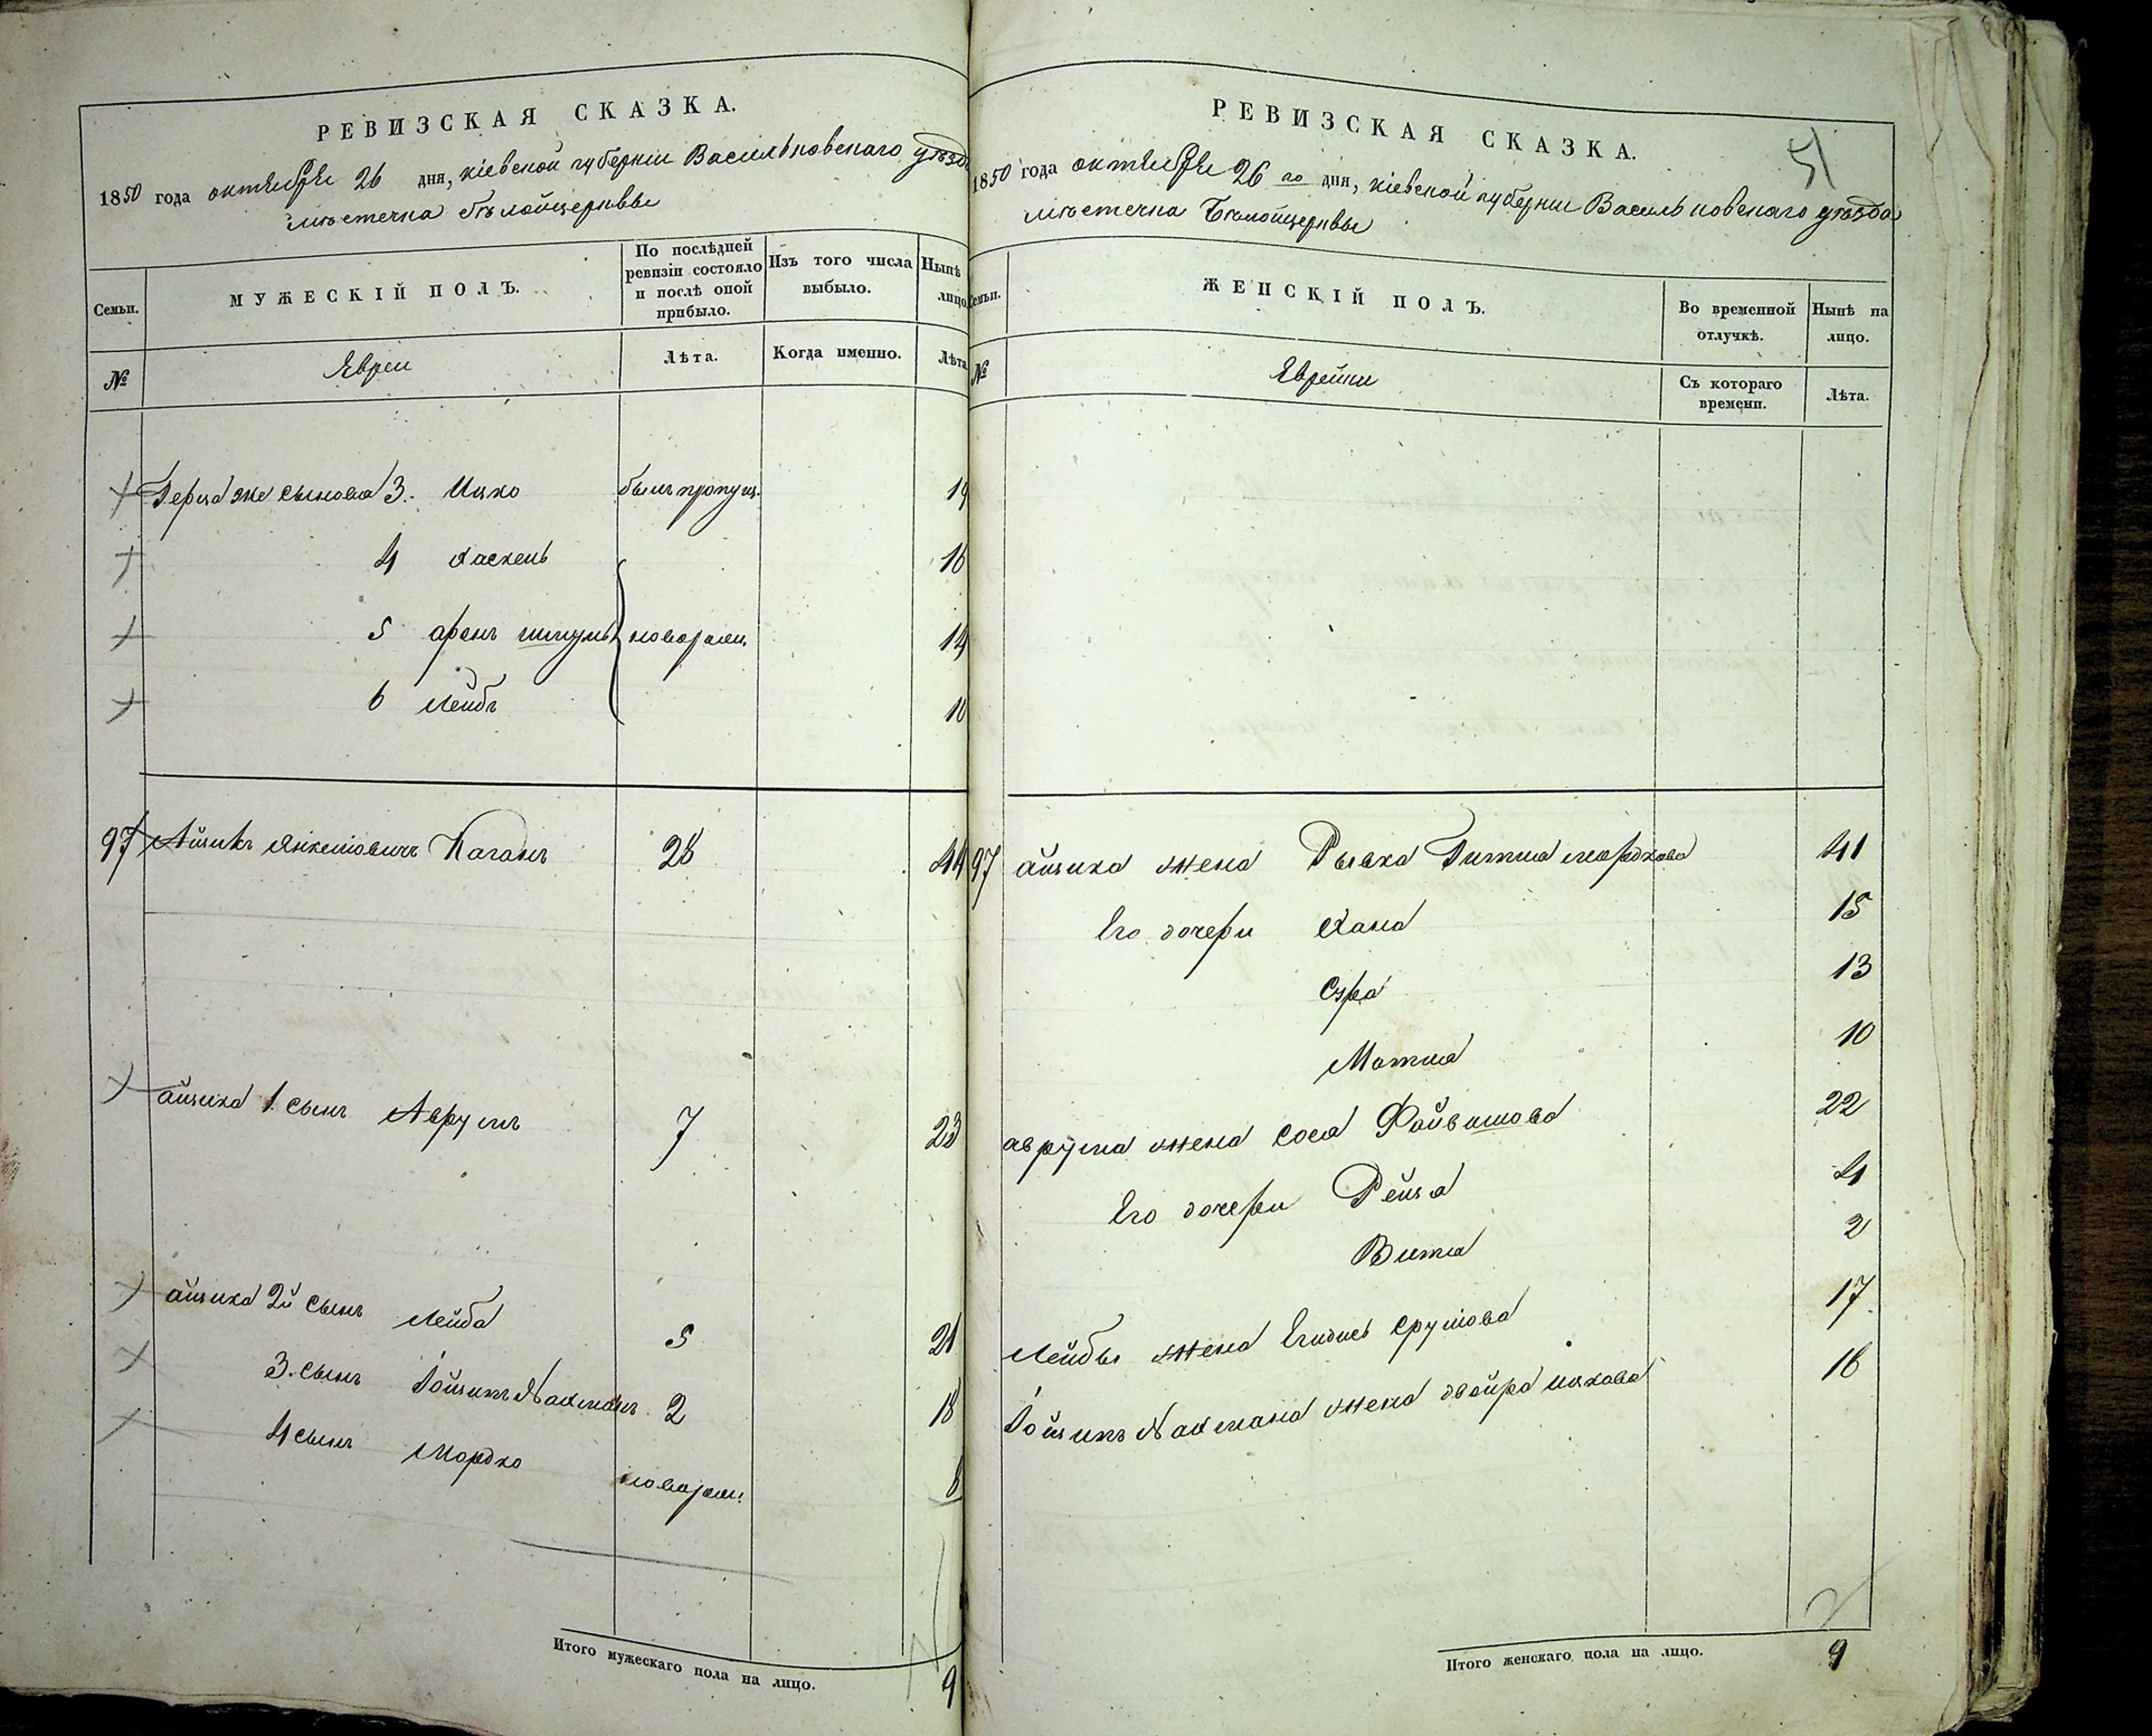 РЕВИЗСКАЯ СКАЗКА.
1850 года октября 26 дня, кіевской губерніи Васильковскаго уезда
мѣстечка бѣлойцерквы
Семьи.
МУЖЕСКІЙ ПОЛЪ.
По послѣдней
ревизіи состояло
и послѣ оной
прибыло.
Изъ того числа
выбыло.
Нынѣ
лицо
№
Евреи
Лѣта.
Когда именно.
Лѣта
Герша же сынова 3. Ицко былъ пропущ. 19
4 Хаскель 16
5 аронъ шмуль новорожд. 14
6 Лейбъ 10
97 Айзикъ Янкеліовичъ Каганъ 28 44
айзика 1 сынъ Аврумъ 7 23
айзика 2й сынъ Лейба 5 21
3. сынъ Іойзипъ Нахманъ 2 18
4 сынъ Мордко новорожд. 8
Итого мужескаго пола на лицо. 9
РЕВИЗСКАЯ СКАЗКА.
51
1850 года октября 26 го дня, кіевской губерніи Васильковскаго уѣзда
мѣстечка Бѣлойцерквы
Семьи.
ЖЕНСКІЙ ПОЛЪ.
Во временной
отлучкѣ.
Нынѣ на
лицо.
№
Еврейки
Съ котораго
времени.
Лѣта.
97 айзика жена Рывка Гитля мордкова 41
Его дочери Хана 15
Сура 13
Матля 10
аврума жена Сося Файвишова 22
Его дочери Рейза 4
Витля 2
Лейбы жена Гнидись сруліова 17
Іойзипъ Нахмана жена двойра ицкова 16
Итого женскаго пола на лицо. 9